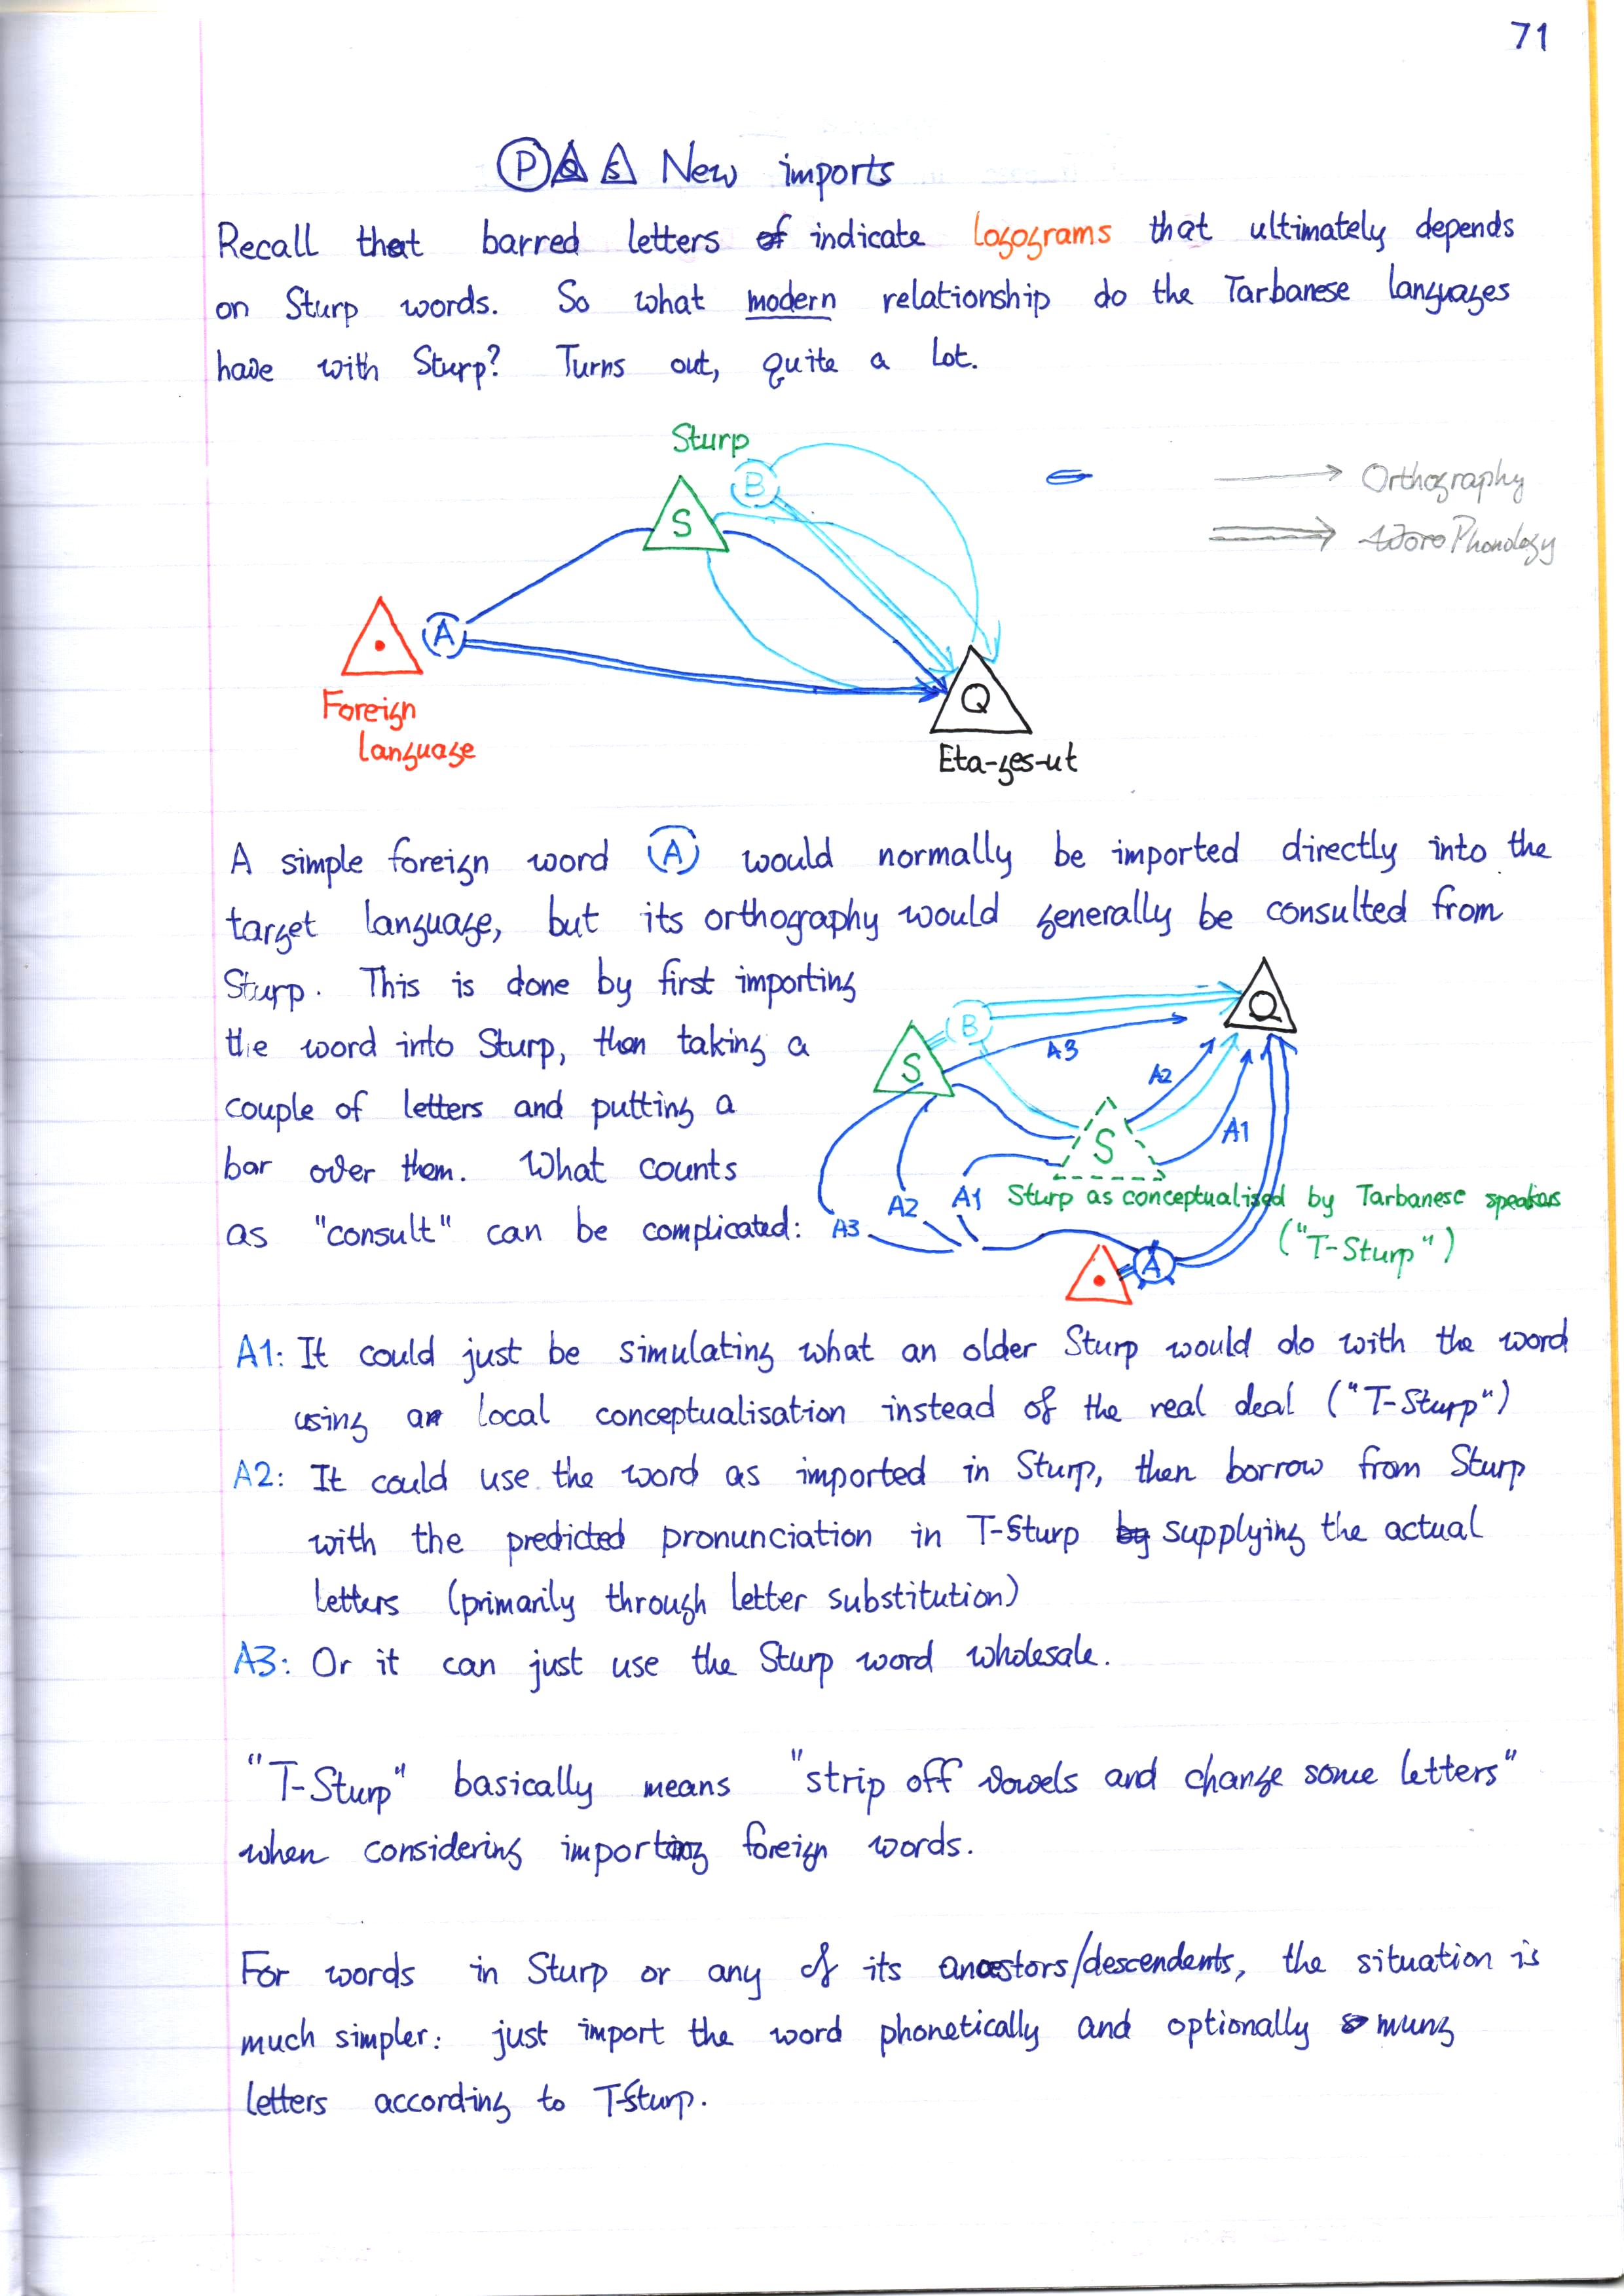 71
P Q S New imports
Recall that barred letters of indicate logograms that ultimately depends
on Sturp words. So what modern relationship do the Tarbanese languages
have with Sturp? Turns out, quite a lot.
Sturp
B
S
Orthography
Word Phonology
A
Foreign
language
Q
Eta-ges-ut
A simple foreign word A would normally be imported directly into the
target language, but its orthography would generally be consulted from
Sturp. This is done by first importing
the word into Sturp, then taking a
couple of letters and putting a
bar over them. What counts
as "consult" can be complicated:
Q
B
S
A3
A2
A1
S
A3 A2 A1 Sturp as conceptualised by Tarbanese speakers
("T-Sturp")
A
A1: It could just be simulating what an older Sturp would do with the word
using a local conceptualisation instead of the real deal ("T-Sturp")
A2: It could use the word as imported in Sturp, then borrow from Sturp
with the predicted pronunciation in T-Sturp by supplying the actual
letters (primarily through letter substitution)
A3: Or it can just use the Sturp word wholesale.
"T-Sturp" basically means "strip off vowels and change some letters"
when considering importing foreign words.
For words in Sturp or any of its ancestors/descendents, the situation is
much simpler: just import the word phonetically and optionally mung
letters according to T-Sturp.